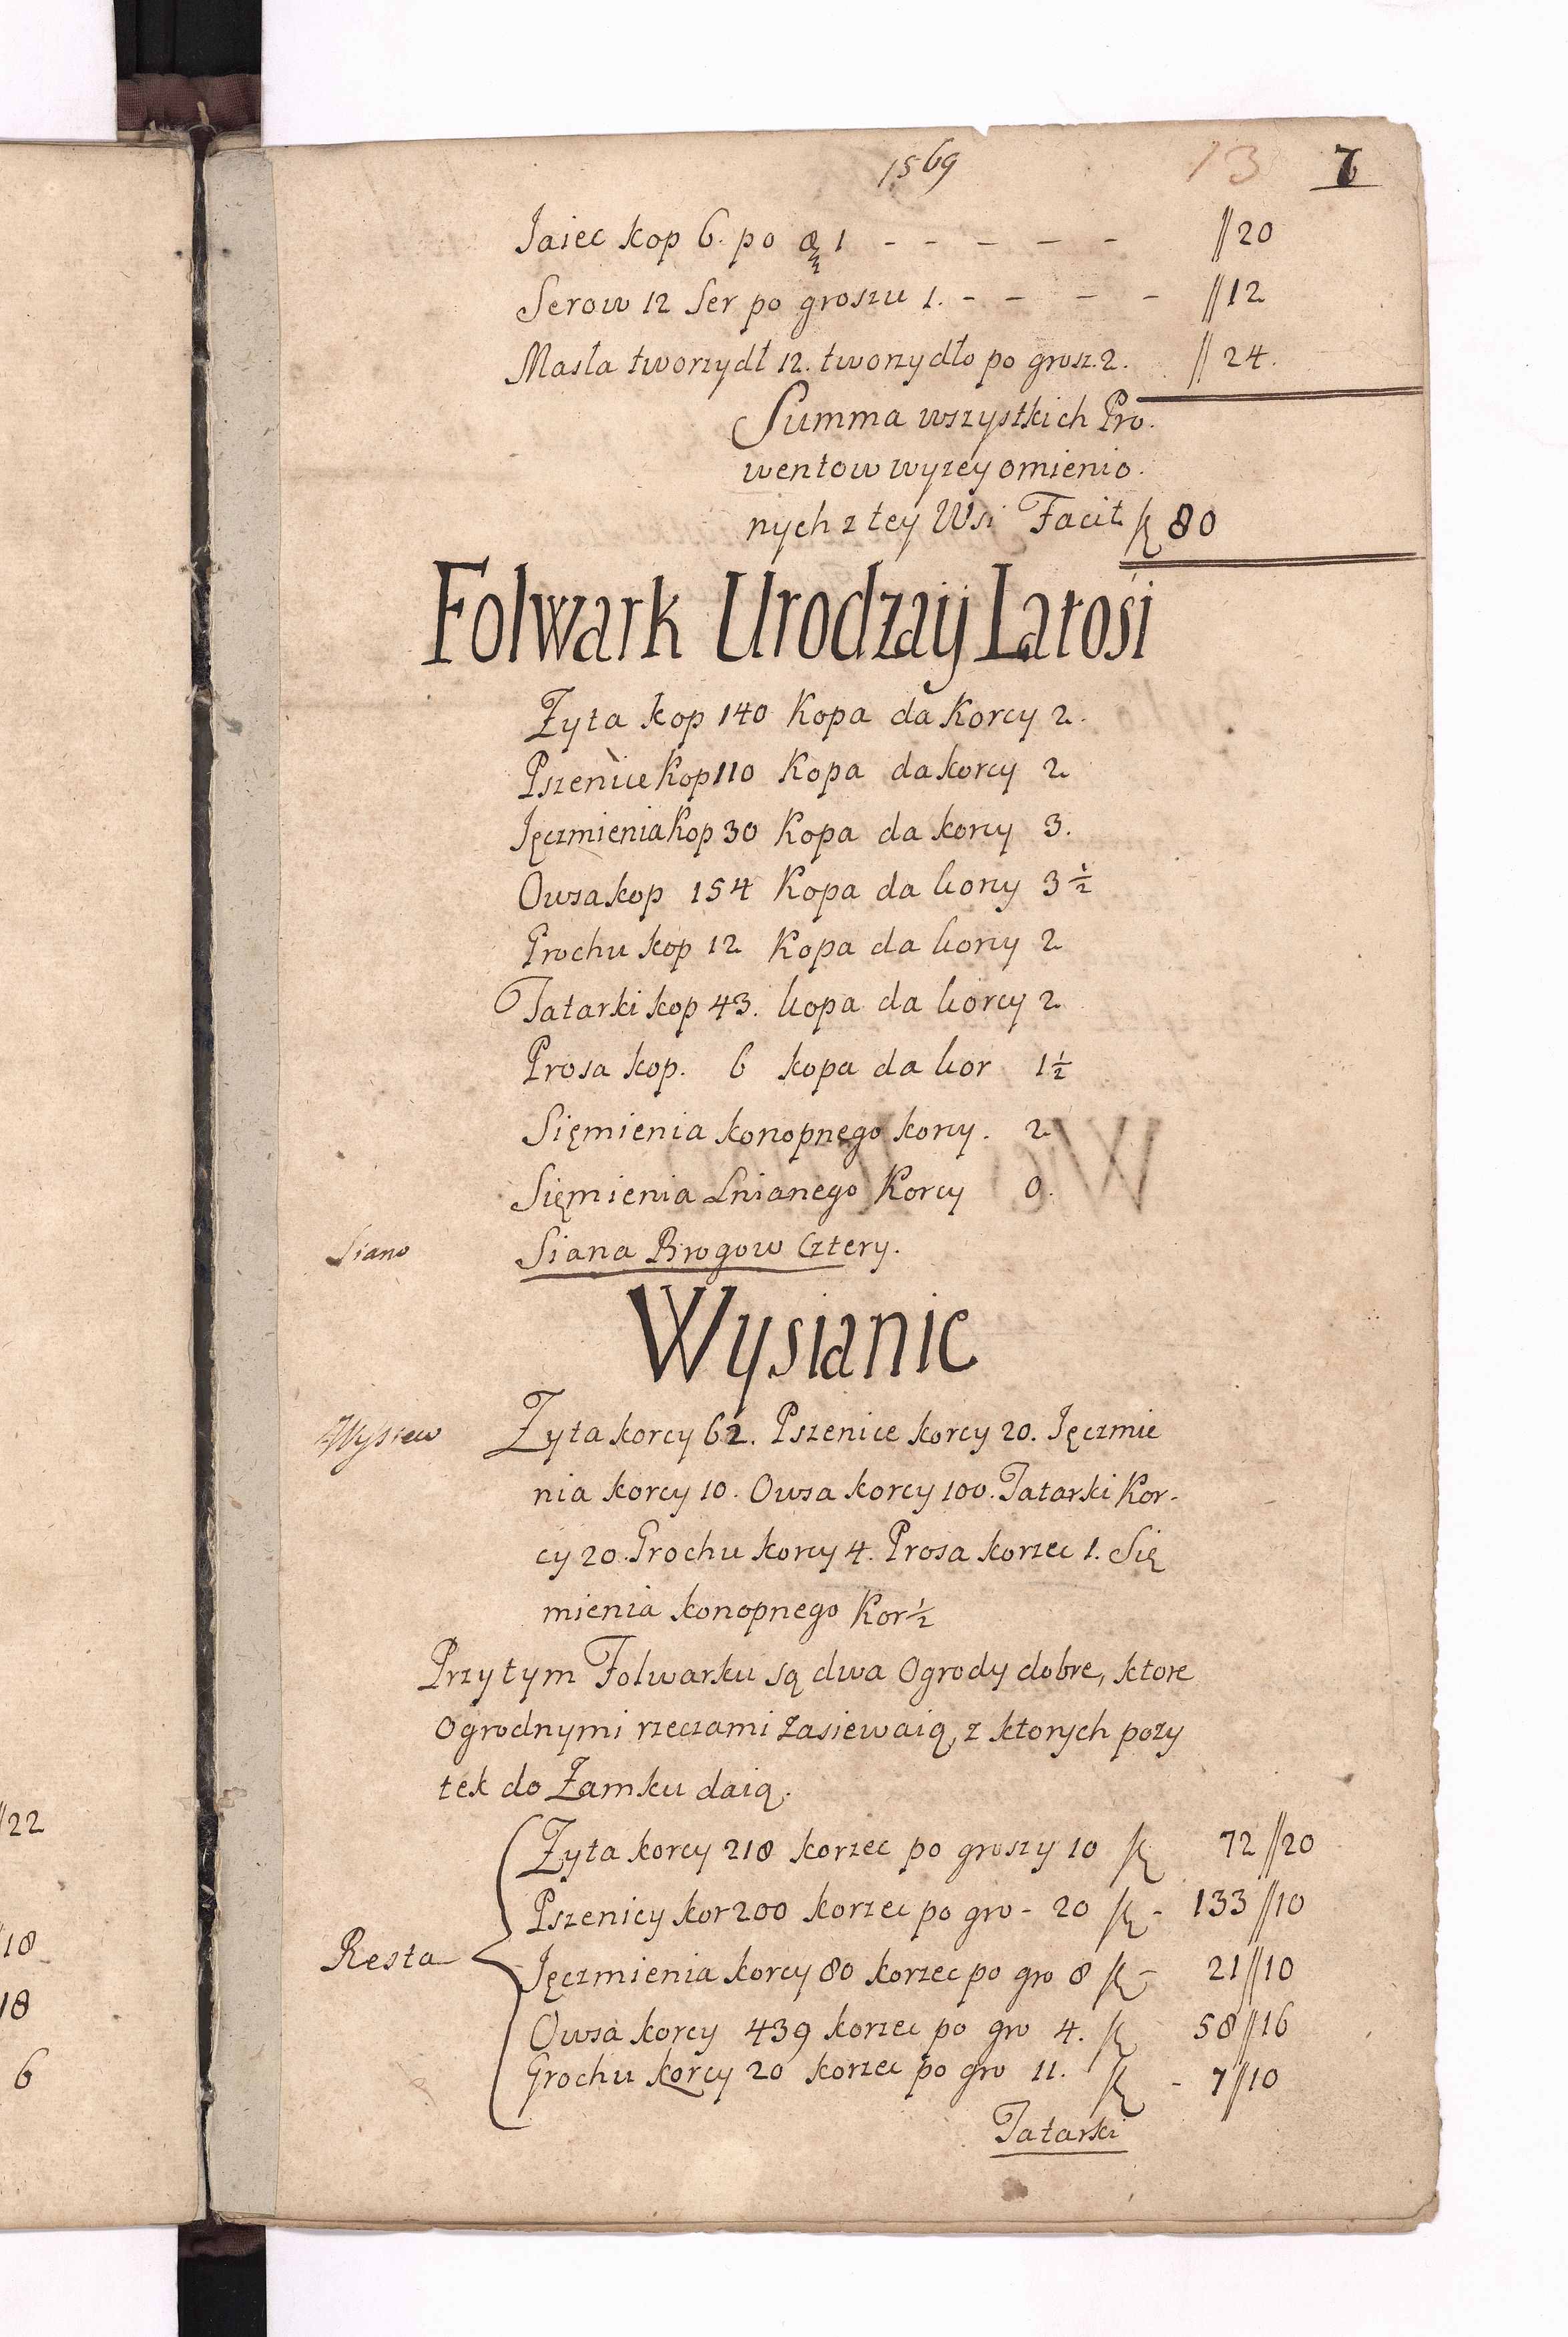 1569 13 7
Jaiec kop 6. po 1 - - - - - //20
Serow 12 Ser po groszu 1. - - - - //12
Masła tworzydł 12. tworzydło po grosz. 2. //24.
Summa wszystkich Pro.
wentow wyzey omienio.
nych z tey Wsi Facit 80
Folwark Urodzaÿ Latosi
Zyta kop 140 Kopa da Korcy 2.
Pszenice Kop 110 Kopa da korcy 2
Jęczmienia Kop 30 Kopa da korcy 3.
Owsa kop 154 Kopa da korcy 3 1/2
Grochu kop 12 Kopa da korcy 2
Tatarki kop 43. kopa da korcy 2
Prosa kop. 6 kopa da kor 1 1/2
Sięmienia konopnego korcy. 2
Sięmienia Lnianego Korcy 0.
Siano Siana Brogow Cztery.
Wysianie
Wysiew Zyta korcy 62. Pszenice korcy 20. Jęczmie
nia korcy 10. Owsa korcy 100. Tatarki Kor-
cy 20. Grochu korcy 4. Prosa korzec 1. Się
mienia konopnego Kor 1/2
Przy tym Folwarku są dwa Ogrody dobre, ktore
Ogrodnymi rzeczami zasiewaią, z ktorych pozy
tek do Zamku daią.
Zyta korcy 218 korzec po groszy 10 72//20
//22
Pszenicy kor 200 korzec po gro - 20 - 133//10
//18
Resta
Jęczmienia korcy 80 korzec po gro 8 - 21//10
18
Owsa korcy 439 korzec po gro 4. 58//16
6
Grochu korcy 20 korzec po gro 11. - 7//10
Tatarki